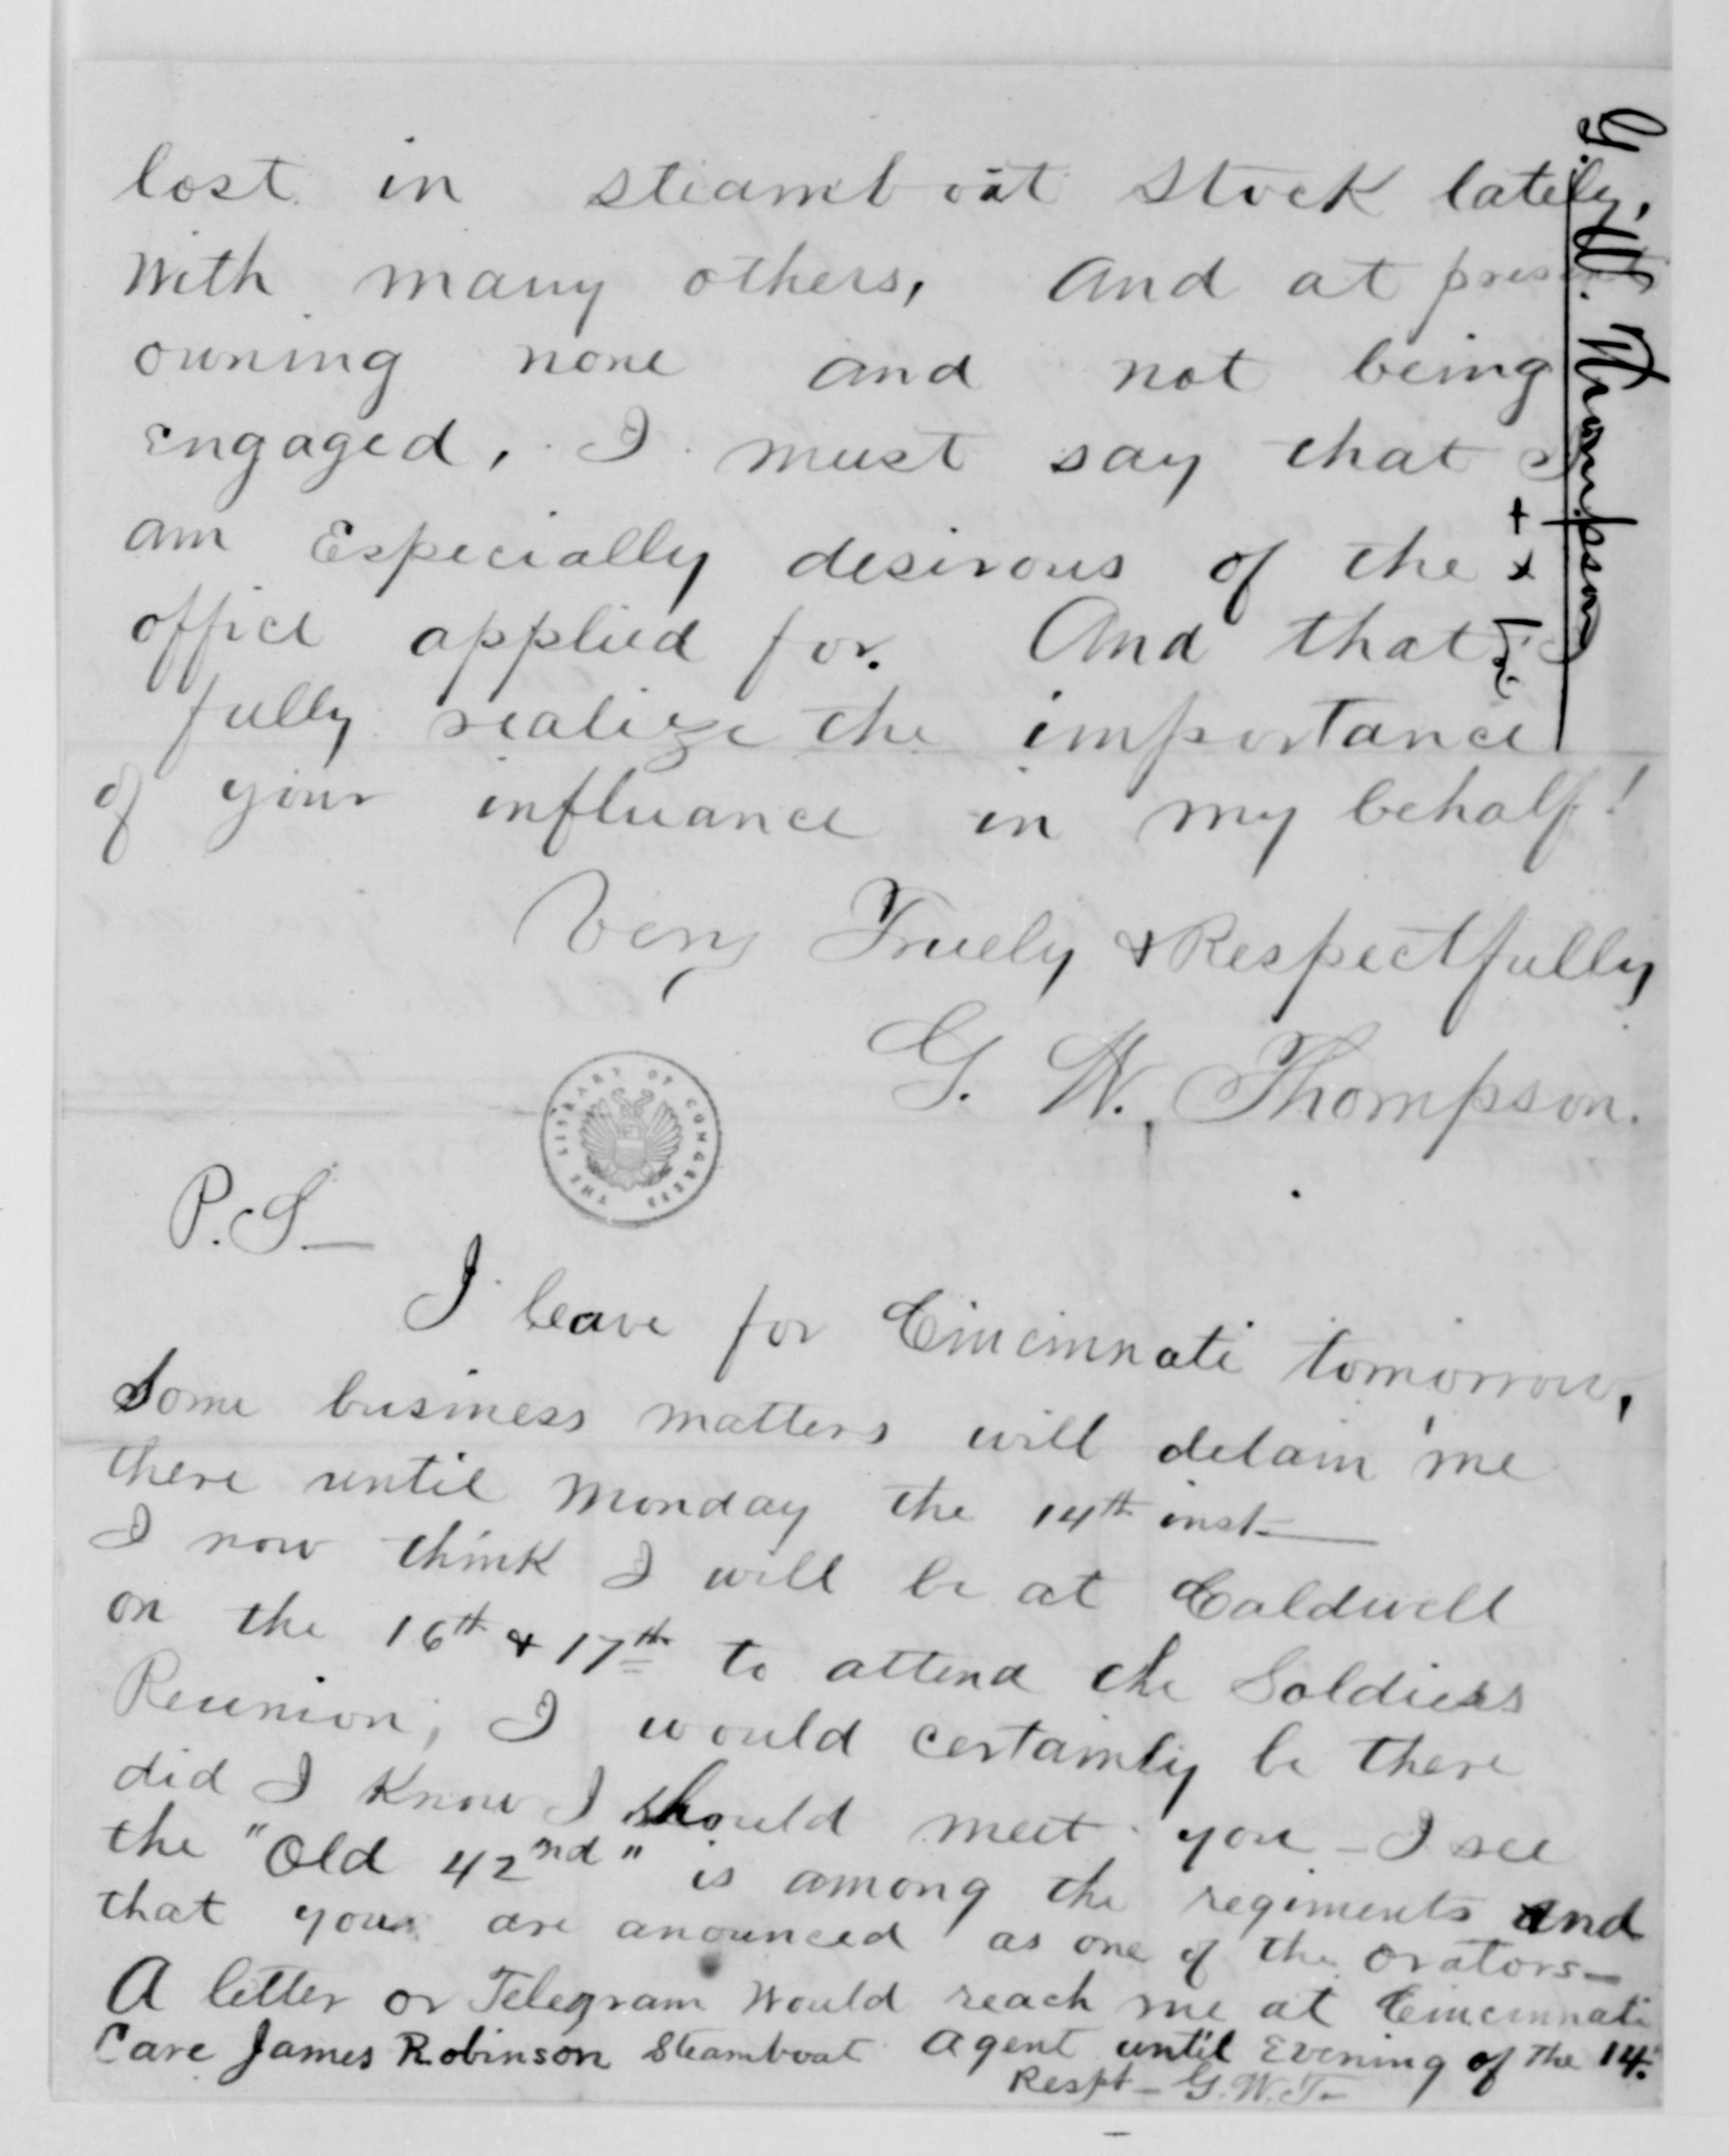 lost in steamboat stock lately,
With many others, And at present
owning none and not being
engaged, I must say that I
am Especially desirous of the
office applied for. And that I
fully realize the importance
of your influance in my behalf!
Very Truely & Respectfully
G. W. Thompson.
THE LIBRARY OF CONGRESS
P.S—
I leave for Cincinnati tomorrow,
Some business matters will detain me
there until Monday the 14th inst—
I now think I will be at Caldwell
on the 16th & 17th to attend the Soldiers
Reunion; I would certainly be there
did I Know I should meet you – I see
the "Old 42nd" is among the regiments and
that you are anounced as one of the orators—
A letter or Telegram Would reach me at Cincinnati
Care James Robinson Steamboat Agent until Evening of The 14th
Respt – G. W. T–
G. W. Thompson